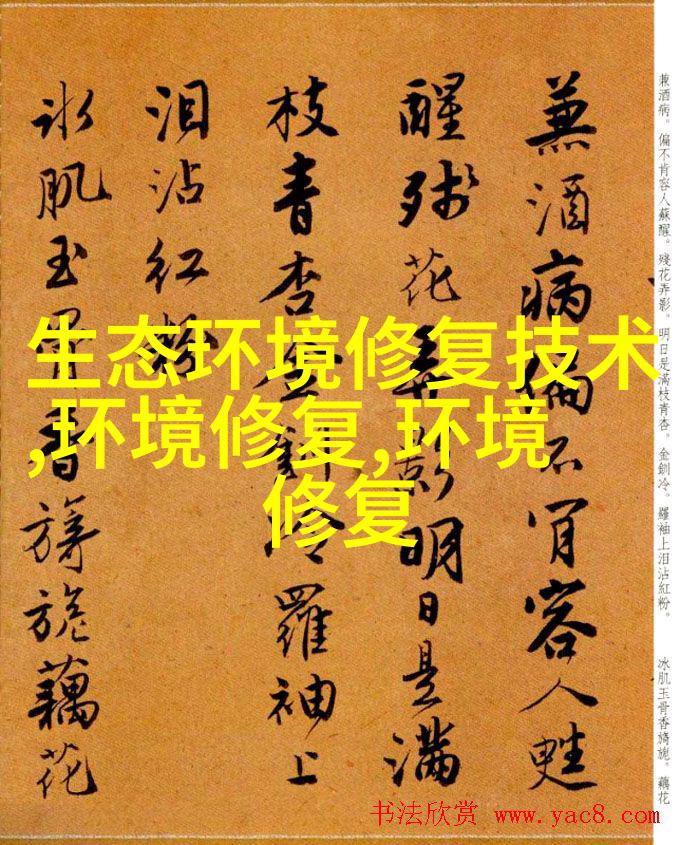 兼酒病。偏不肯容人蘇醒。殘花弄影。明日是滿枝青杏。金釧冷。羅袖上泪沾紅粉。
冰肌玉骨香旖旎。藕花
蒹酒病偏不肯容人甦
醒殘花弄影明日是滿
枝青杏金釧冷羅袖上
泪沾紅粉
冰肌玉骨香旖旎藕花
生态环境修复技术
,环境修复,环境
修复
书法欣赏 www.yac8.com